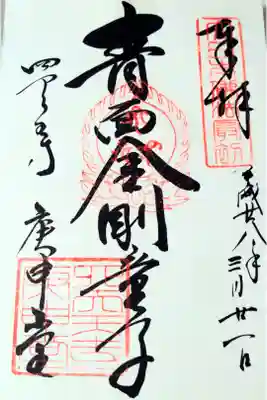 奉拝
平成廿八年三月廿一日
青面金剛童子
四天王寺
庚申堂